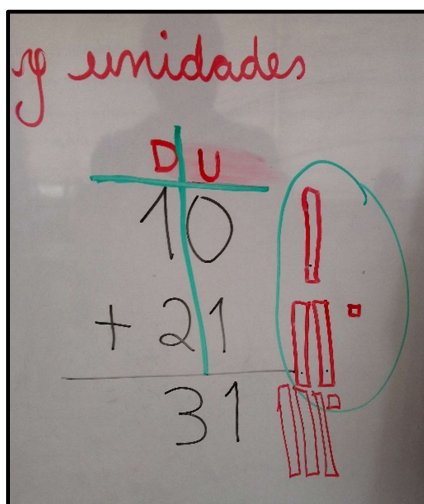 y unidades
D U
10
+ 21
31